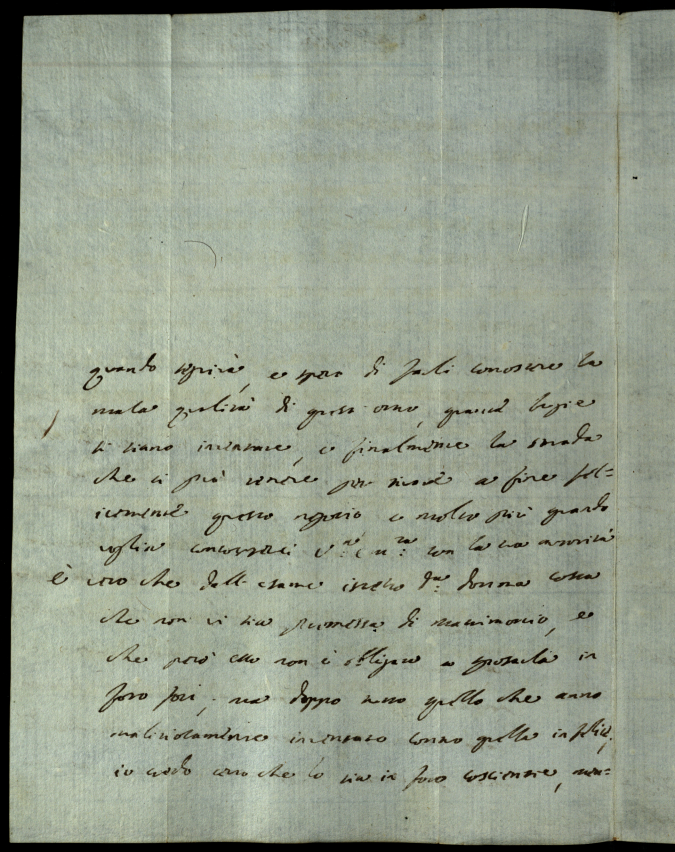 quando scrivà, e spera di farli conoscere la
mala qualità di quest'omo, quante bugie
si siano inventate, e finalmente la strada
che si può tenere per tirare a fine fel=
icemente questo negozio e molto più quando
voglia concorrerci V. E. con la sua autorità
è vero che dall'esame istesso d.ª donna costa
che non vi sia promessa di matrimonio, e
che però esso non è obligato a sposarla in
foro fori; ma doppo tutto quello che anno
maliziosamente inventato contro quella infelice,
io credo certo che lo sia in foro conscientie,